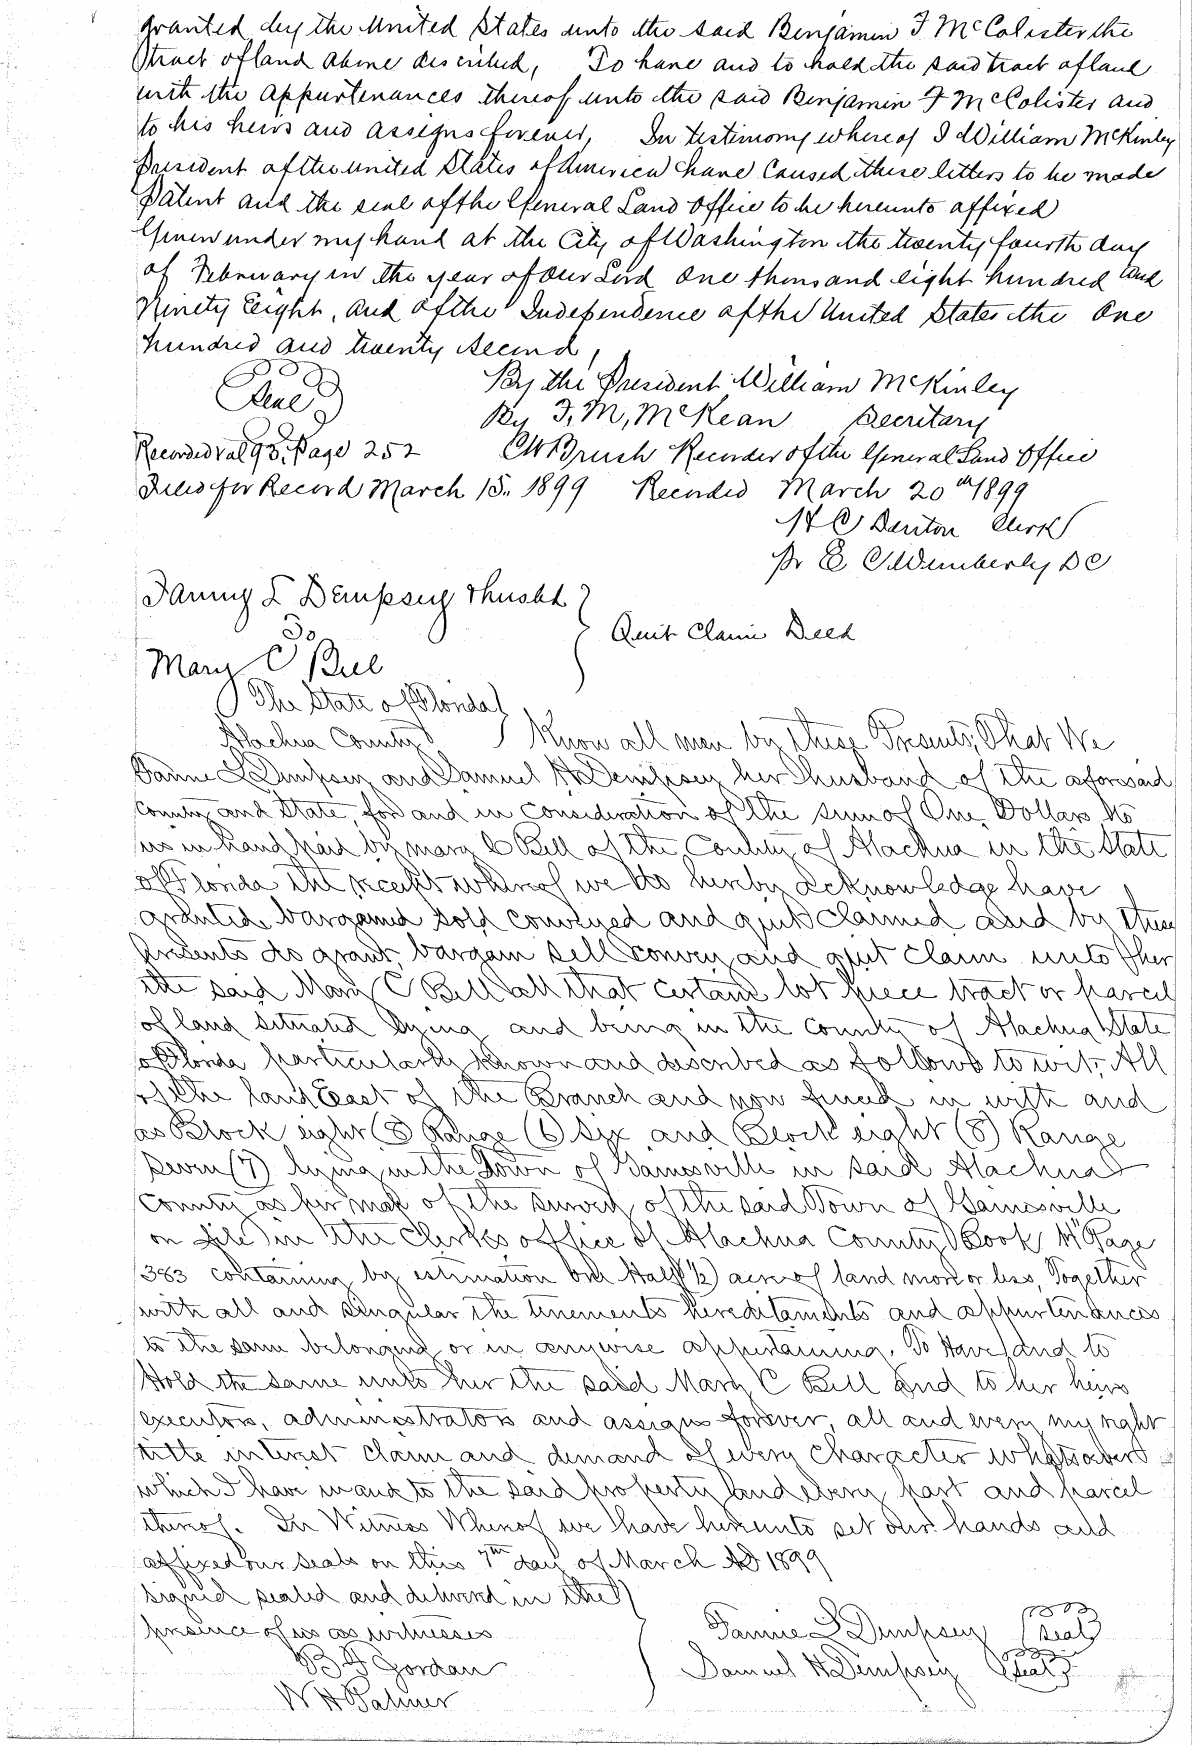 granted by the United States unto the said Benjamin F McColister the
tract of land above described, To have and to hold the said tract of land
with the appurtenances thereof unto the said Benjamin F McColister and
to his heirs and assigns forever, In testimony whereof I William McKinley
President of the United States of America have caused these letters to be made
Patent and the seal of the General Land Office to be hereunto affixed
Given under my hand at the City of Washington the twenty fourth day
of February in the year of our Lord one thousand eight hundred and
Ninety Eight, and of the Independence of the United States the One
hundred and twenty second,
Seal
By the President William McKinley
By F, M, McKean Secretary
Recorded vol 93, Page 252 C W Brush Recorder of the General Land Office
Filed for Record March 15, 1899 Recorded March 20th 1899
H C Denton Clerk
Pr E C Wimberly DC
Fanny L Dempsey & husbd
To
Quit Claim Deed
Mary C Bell
The State of Florida
Alachua County Know all men by these Presents, That We
Fannie L Dempsey and Samuel H Dempsey her husband of the aforesaid
County and State, for and in consideration of the sum of One Dollars to
us in hand paid by Mary C Bell of the County of Alachua in the State
of Florida the receipt whereof we do hereby acknowledge have
granted, bargained sold conveyed and quit claimed and by these
presents do grant, bargain sell convey and quit claim unto her
the said Mary C Bell all that certain lot piece tract or parcel
of land situated lying and being in the county of Alachua State
of Florida particularly known and described as follows to wit; All
of the land East of the Branch and now fenced in with and
as Block eight (8) Range (6) six and Block eight (8) Range
Seven (7) lying in the Town of Gainesville in said Alachua
County as per map of the survey of the said Town of Gainesville
on file in the Clerks office of Alachua County Book Page
383 containing by estimation one Half (½) acre of land more or less, Together
with all and singular the tenements hereditaments and appurtenances
to the same belonging or in anywise appertaining. To Have and to
Hold the same unto her the said Mary C Bell and to her heirs
executors, administrators and assigns forever, all and every my right
title interest claim and demand of every character whatsoever
which I have in and to the said property and every part and parcel
thereof. In Witness Whereof we have hereunto set our hands and
affixed our seals on this 7th day of March AD 1899
signed sealed and delivered in the
presence of us as witnesses
Fannie L Dempsey Seal
B F Jordan
Samuel H Dempsey Seal
W H Palmer